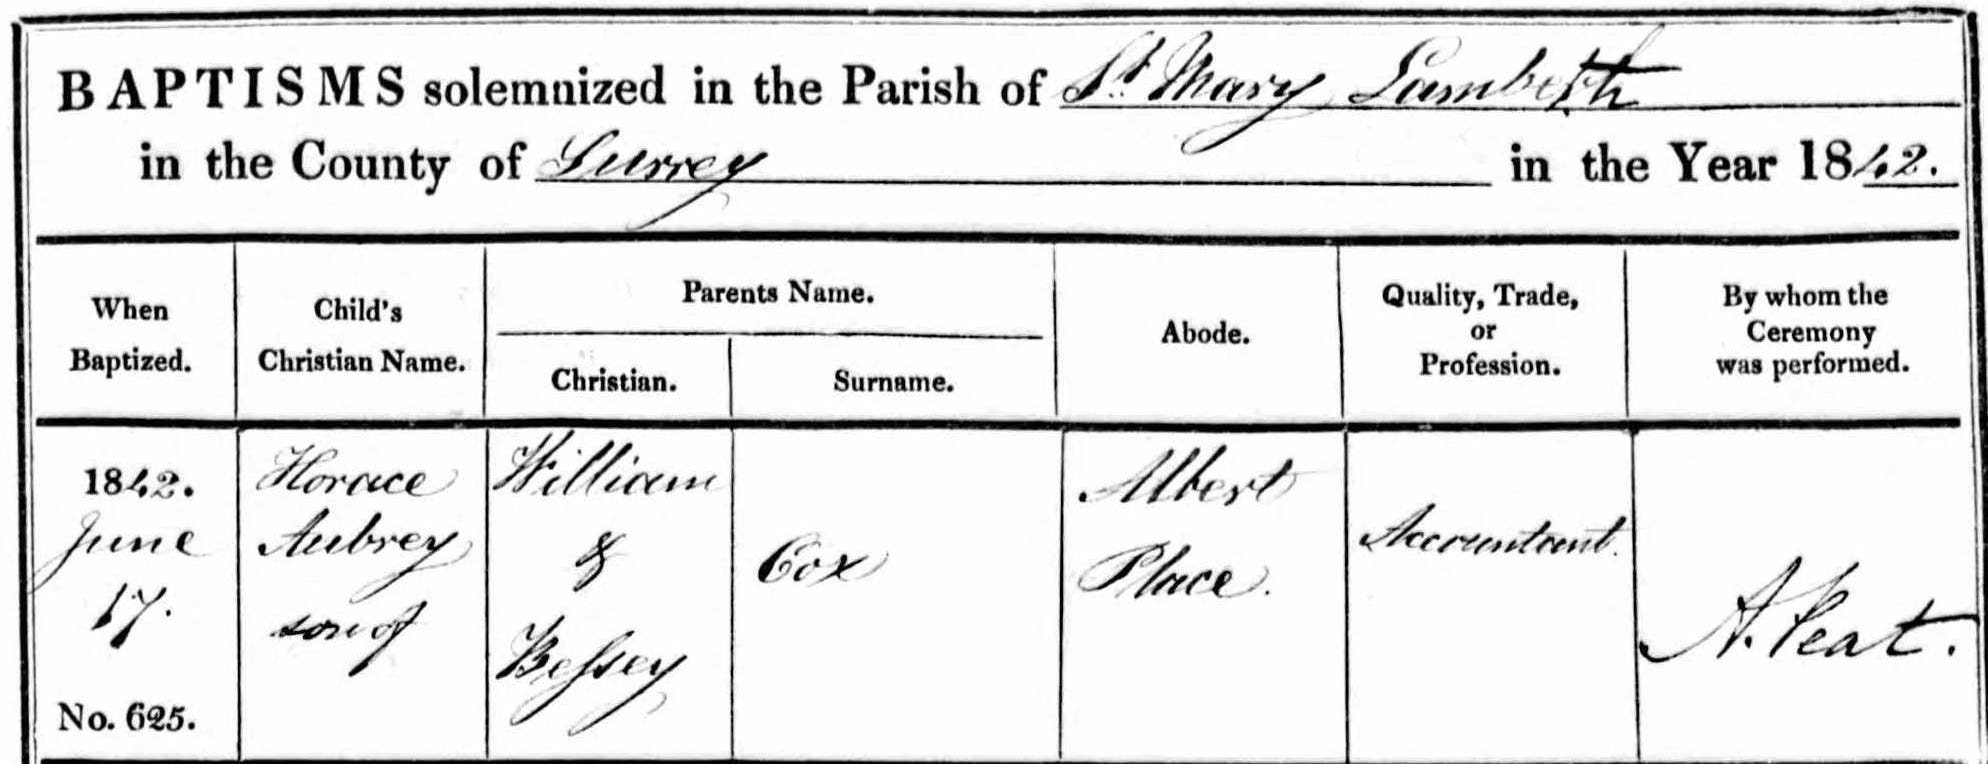 BAPTISMS solemnized in the Parish of St. Mary Lambeth
in the County of Surrey in the Year 1842.
When
Baptized.
Child's
Christian Name.
Parents Name.
Christian.
Surname.
Abode.
Quality, Trade,
or
Profession.
By whom the
Ceremony
was performed.
1842.
June
17.
No. 625.
Horace
Aubrey
son of
William
&
Beſsey
Cox
Albert
Place.
Accountant.
A. Peat.